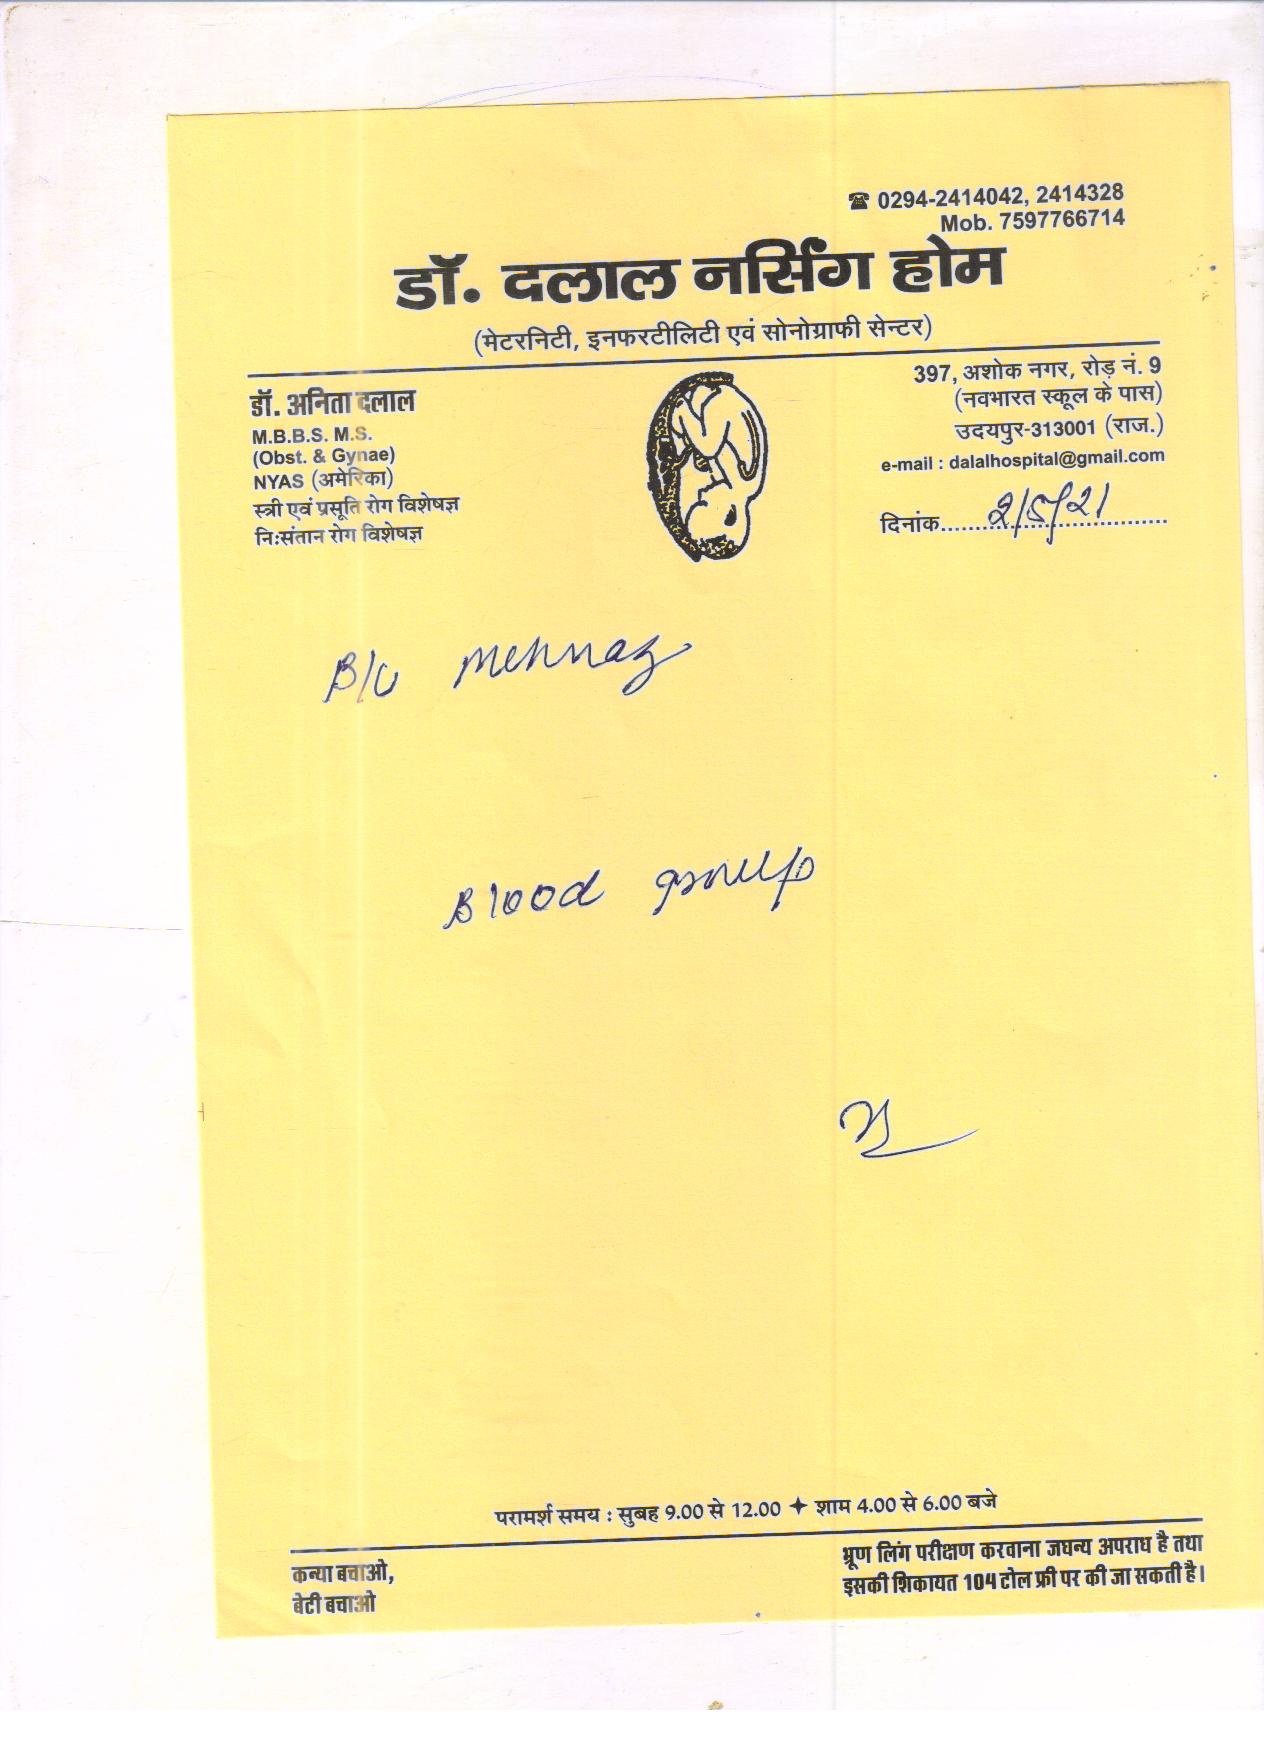 ☎ 0294-2414042, 2414328
Mob. 7597766714
डॉ. दलाल नर्सिंग होम
(मेटरनिटी, इनफरटीलिटी एवं सोनोग्राफी सेन्टर)
डॉ. अनिता दलाल
M.B.B.S. M.S.
(Obst. & Gynae)
NYAS (अमेरिका)
स्त्री एवं प्रसूति रोग विशेषज्ञ
निःसंतान रोग विशेषज्ञ
397, अशोक नगर, रोड़ नं. 9
(नवभारत स्कूल के पास)
उदयपुर-313001 (राज.)
e-mail : dalalhospital@gmail.com
दिनांक 2/5/21
B/o Mehnaz
Blood group
परामर्श समय : सुबह 9.00 से 12.00 ✦ शाम 4.00 से 6.00 बजे
कन्या बचाओ,
बेटी बचाओ
भ्रूण लिंग परीक्षण करवाना जघन्य अपराध है तथा
इसकी शिकायत 104 टोल फ्री पर की जा सकती है।